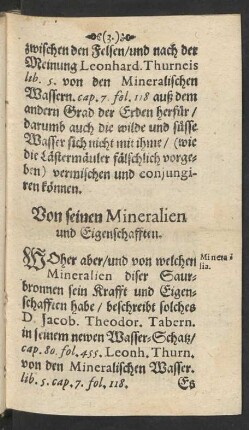 (3.)
zwischen den Felsen/und nach der
Meinung Leonhard. Thurneis
lib. 5. von den Mineralischen
Wassern. cap. 7. fol. 118 auß dem
andern Grad der Erden herfür/
darumb auch die wilde und süsse
Wasser sich nicht mit ihme/ (wie
die Lästermäuler fälschlich vorge-
ben) vermischen und conjungi-
ren können.
Von seinen Mineralien
und Eigenschafften.
WOher aber/und von welchen
Mineralien diser Saur-
bronnen sein Krafft und Eigen-
schafften habe/ beschreibt solches
D. Jacob. Theodor. Tabern.
in seinem newen Wasser-Schatz/
cap. 80. fol. 455. Leonh. Thurn.
von den Mineralischen Wasser.
lib. 5. cap. 7. fol. 118.
Es
Minera-
lia.